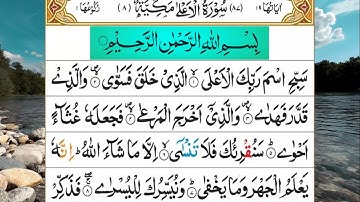 اٰیَاتُهَا ١٩ (٨٧) سُوْرَةُ الْاَعْلٰى مَكِّيَّةٌ (٨) رُكُوْعُهَا ١
بِسْمِ اللّٰهِ الرَّحْمٰنِ الرَّحِيْمِ
سَبِّحِ اسْمَ رَبِّكَ الْاَعْلَى ۙ‏ ١ الَّذِىْ خَلَقَ فَسَوّٰى ۙ‏ ٢ وَالَّذِىْ
قَدَّرَ فَهَدٰى ۙ‏ ٣ وَالَّذِىْۤ اَخْرَجَ الْمَرْعٰى ۙ‏ ٤ فَجَعَلَهٗ غُثَآءً
اَحْوٰى ؕ‏ ٥ سَنُقْرِئُكَ فَلَا تَنْسٰٓى ۙ‏ ٦ اِلَّا مَا شَآءَ اللّٰهُ ؕ اِنَّهٗ
يَعْلَمُ الْجَهْرَ وَمَا يَخْفٰى ؕ‏ ٧ وَنُيَسِّرُكَ لِلْيُسْرٰى ۖ‏ ٨ فَذَكِّرْ